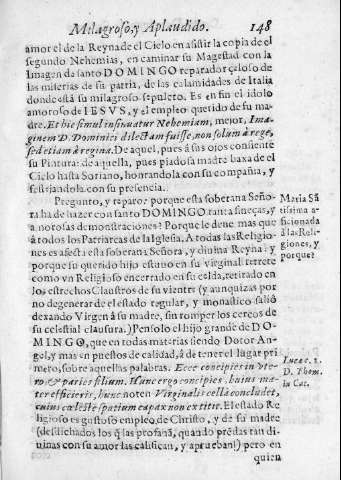 Milagroso, y Aplaudido. 148
amor el de la Reyna de el Cielo en asistir la copia de el
segundo Nehemias, en caminar su Magestad con la
Imagen da santo DOMINGO reparador çeloso de
las miserias de su patria, de las calamidades de Italia
donde está su milagroso sepulcro. Es en fin el idolo
amoroso de IESVS, y el empleo querido de su ma-
dre. Et hic simul insinuatur Nehemiam, mejor, Ima-
ginem D. Dominici dilectam fuisse, non solum à rege,
sed etiam à regina. De aquel, pues á sus ojos consiente
su Pintura: de aquella, pues piadosa madre baxa de el
Cielo hasta Soriano, honrandola con su compañia, y
festejandola con su presencia.
Pregunto, y reparo? porque esta soberana Seño-
ra ha de hazer con santo DOMINGO tantas fineças, y
amorosas demonstraciones? Porque le deue mas que
á todos los Patriarcas de la Iglesia. A todas las Religio-
nes es afecta esta soberana Señora, y diuina Reyna: y
porque su querido hijo estuuo en su virginal retrete
como vn Religioso encerrado en su celda, retirado en
los estrechos Claustros de su vientre (y aunquizas por
no degenerar de el estado regular, y monastico salió
dexando Virgen á su madre, sin romper los cercos de
su celestial clausura.) Pensolo el hijo grande de DO-
MINGO, que en todas materias siendo Dotor An-
gel, y mas en puestos de calidad, á de tener el lugar pri-
mero, sobre aquellas palabras. Ecce concipies in vte-
ro, & paries filium. Hunc ergo concipies, huius ma-
ter efficieris, hunc noten Virginalis cella concludet,
cuius cœleste spatium capax non extitit. El estado Re
ligioso es gustoso empleo de Christo, y de su madre
(desdichados los q̃ las profanã, quando prẽdas tan di-
uinas con su amor las califican, y aprueban) pero en
quien
Maria Sã
tissima a-
ficionada
á las Reli-
giones, y
porque?
Lucae. 1.
D. Thom.
in Cat.